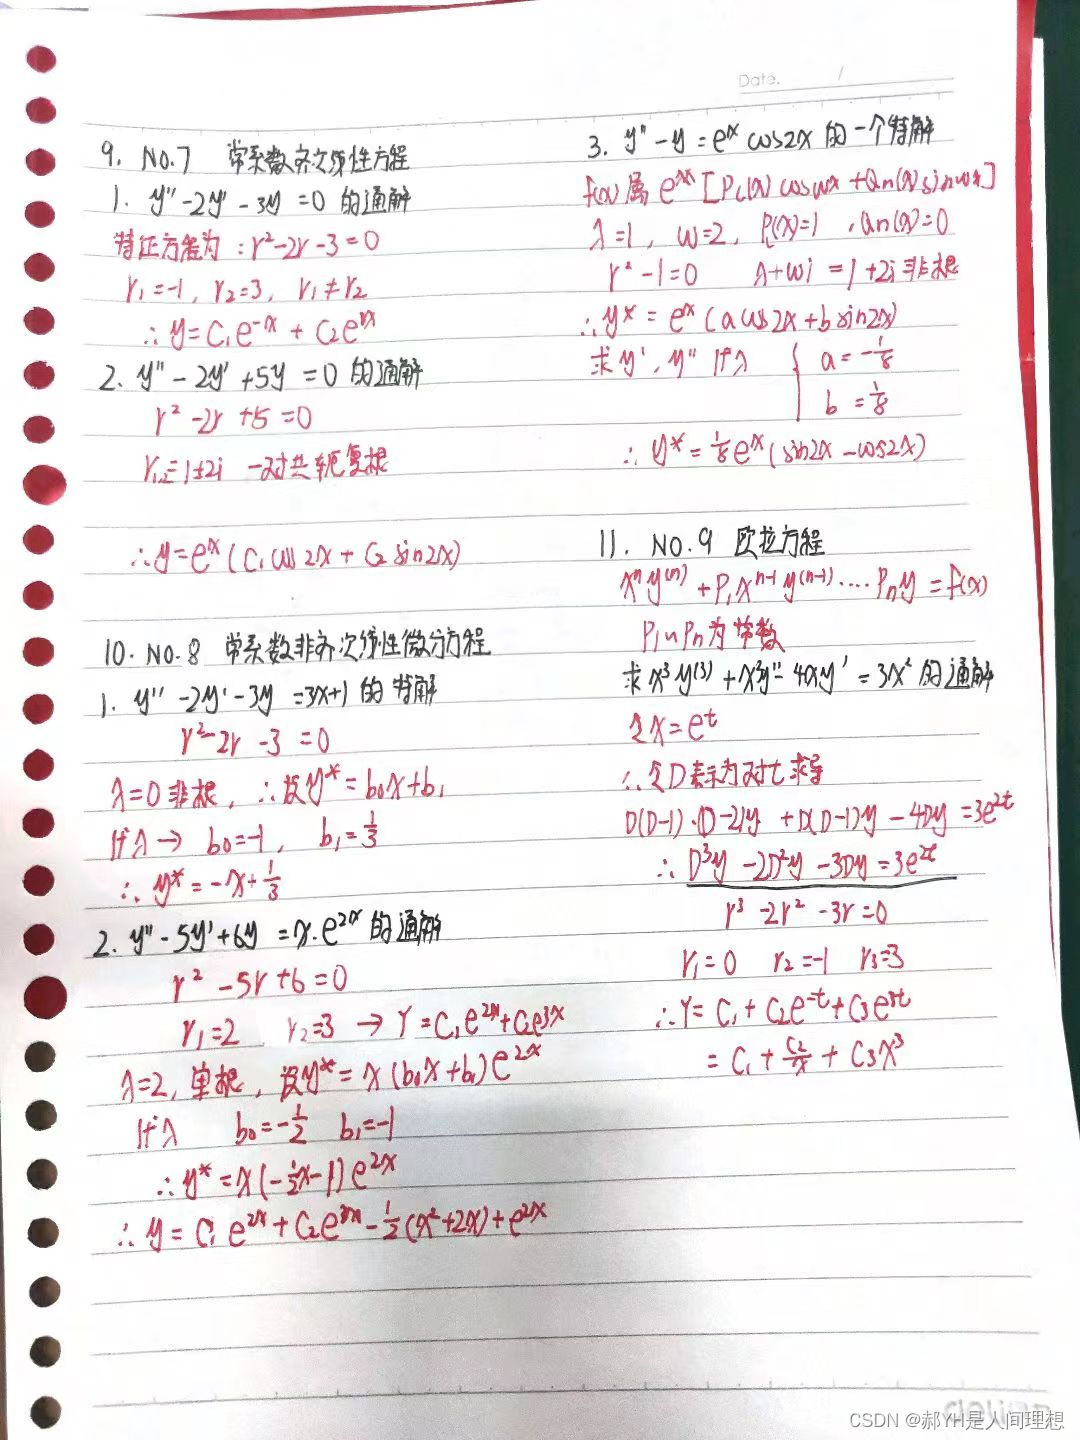 Date. /
9. No.7 常系数齐次线性方程
1. y''-2y'-3y=0 的通解
特征方程为:r²-2r-3=0
r₁=-1, r₂=3, r₁≠r₂
∴y=C₁e⁻ˣ+C₂e³ˣ
2. y''-2y'+5y=0 的通解
r²-2r+5=0
r₁,₂=1±2i 一对共轭复根
∴y=eˣ(C₁cos2x+C₂sin2x)
10. No.8 常系数非齐次线性微分方程
1. y''-2y'-3y=3x+1 的特解
r²-2r-3=0
λ=0非根, ∴设y*=b₀x+b₁
代入→ b₀=-1, b₁=1/3
∴y*=-x+1/3
2. y''-5y'+6y=x·e²ˣ 的通解
r²-5r+6=0
r₁=2 r₂=3 → Y=C₁e²ˣ+C₂e³ˣ
λ=2,单根,设y*=x(b₀x+b₁)e²ˣ
代入 b₀=-1/2 b₁=-1
∴y*=x(-1/2x-1)e²ˣ
∴y=C₁e²ˣ+C₂e³ˣ-1/2(x²+2x)+e²ˣ
3. y''-y=eˣcos2x 的一个特解
f(x)属 e^λx[Pl(x)coswx+Qn(x)sinwx]
λ=1, w=2, Pl(x)=1, Qn(x)=0
r²-1=0 λ+wi=1+2i非根
∴y*=eˣ(acos2x+bsin2x)
求y',y''代入 { a=-1/8
b=1/8
∴y*=1/8eˣ(sin2x-cos2x)
11. No.9 欧拉方程
xⁿy⁽ⁿ⁾+P₁xⁿ⁻¹y⁽ⁿ⁻¹⁾....Pₙy=f(x)
P₁~Pₙ为常数
求x³y⁽³⁾+x²y''-4xy'=3x² 的通解
令x=eᵗ
∴令D表示为对t求导
D(D-1)·(D-2)y+D(D-1)y-4Dy=3e²ᵗ
∴D³y-2D²y-3Dy=3e²ᵗ
r³-2r²-3r=0
r₁=0 r₂=-1 r₃=3
∴Y=C₁+C₂e⁻ᵗ+C₃e³ᵗ
=C₁+C₂/x+C₃x³
CSDN @郝YH是人间理想